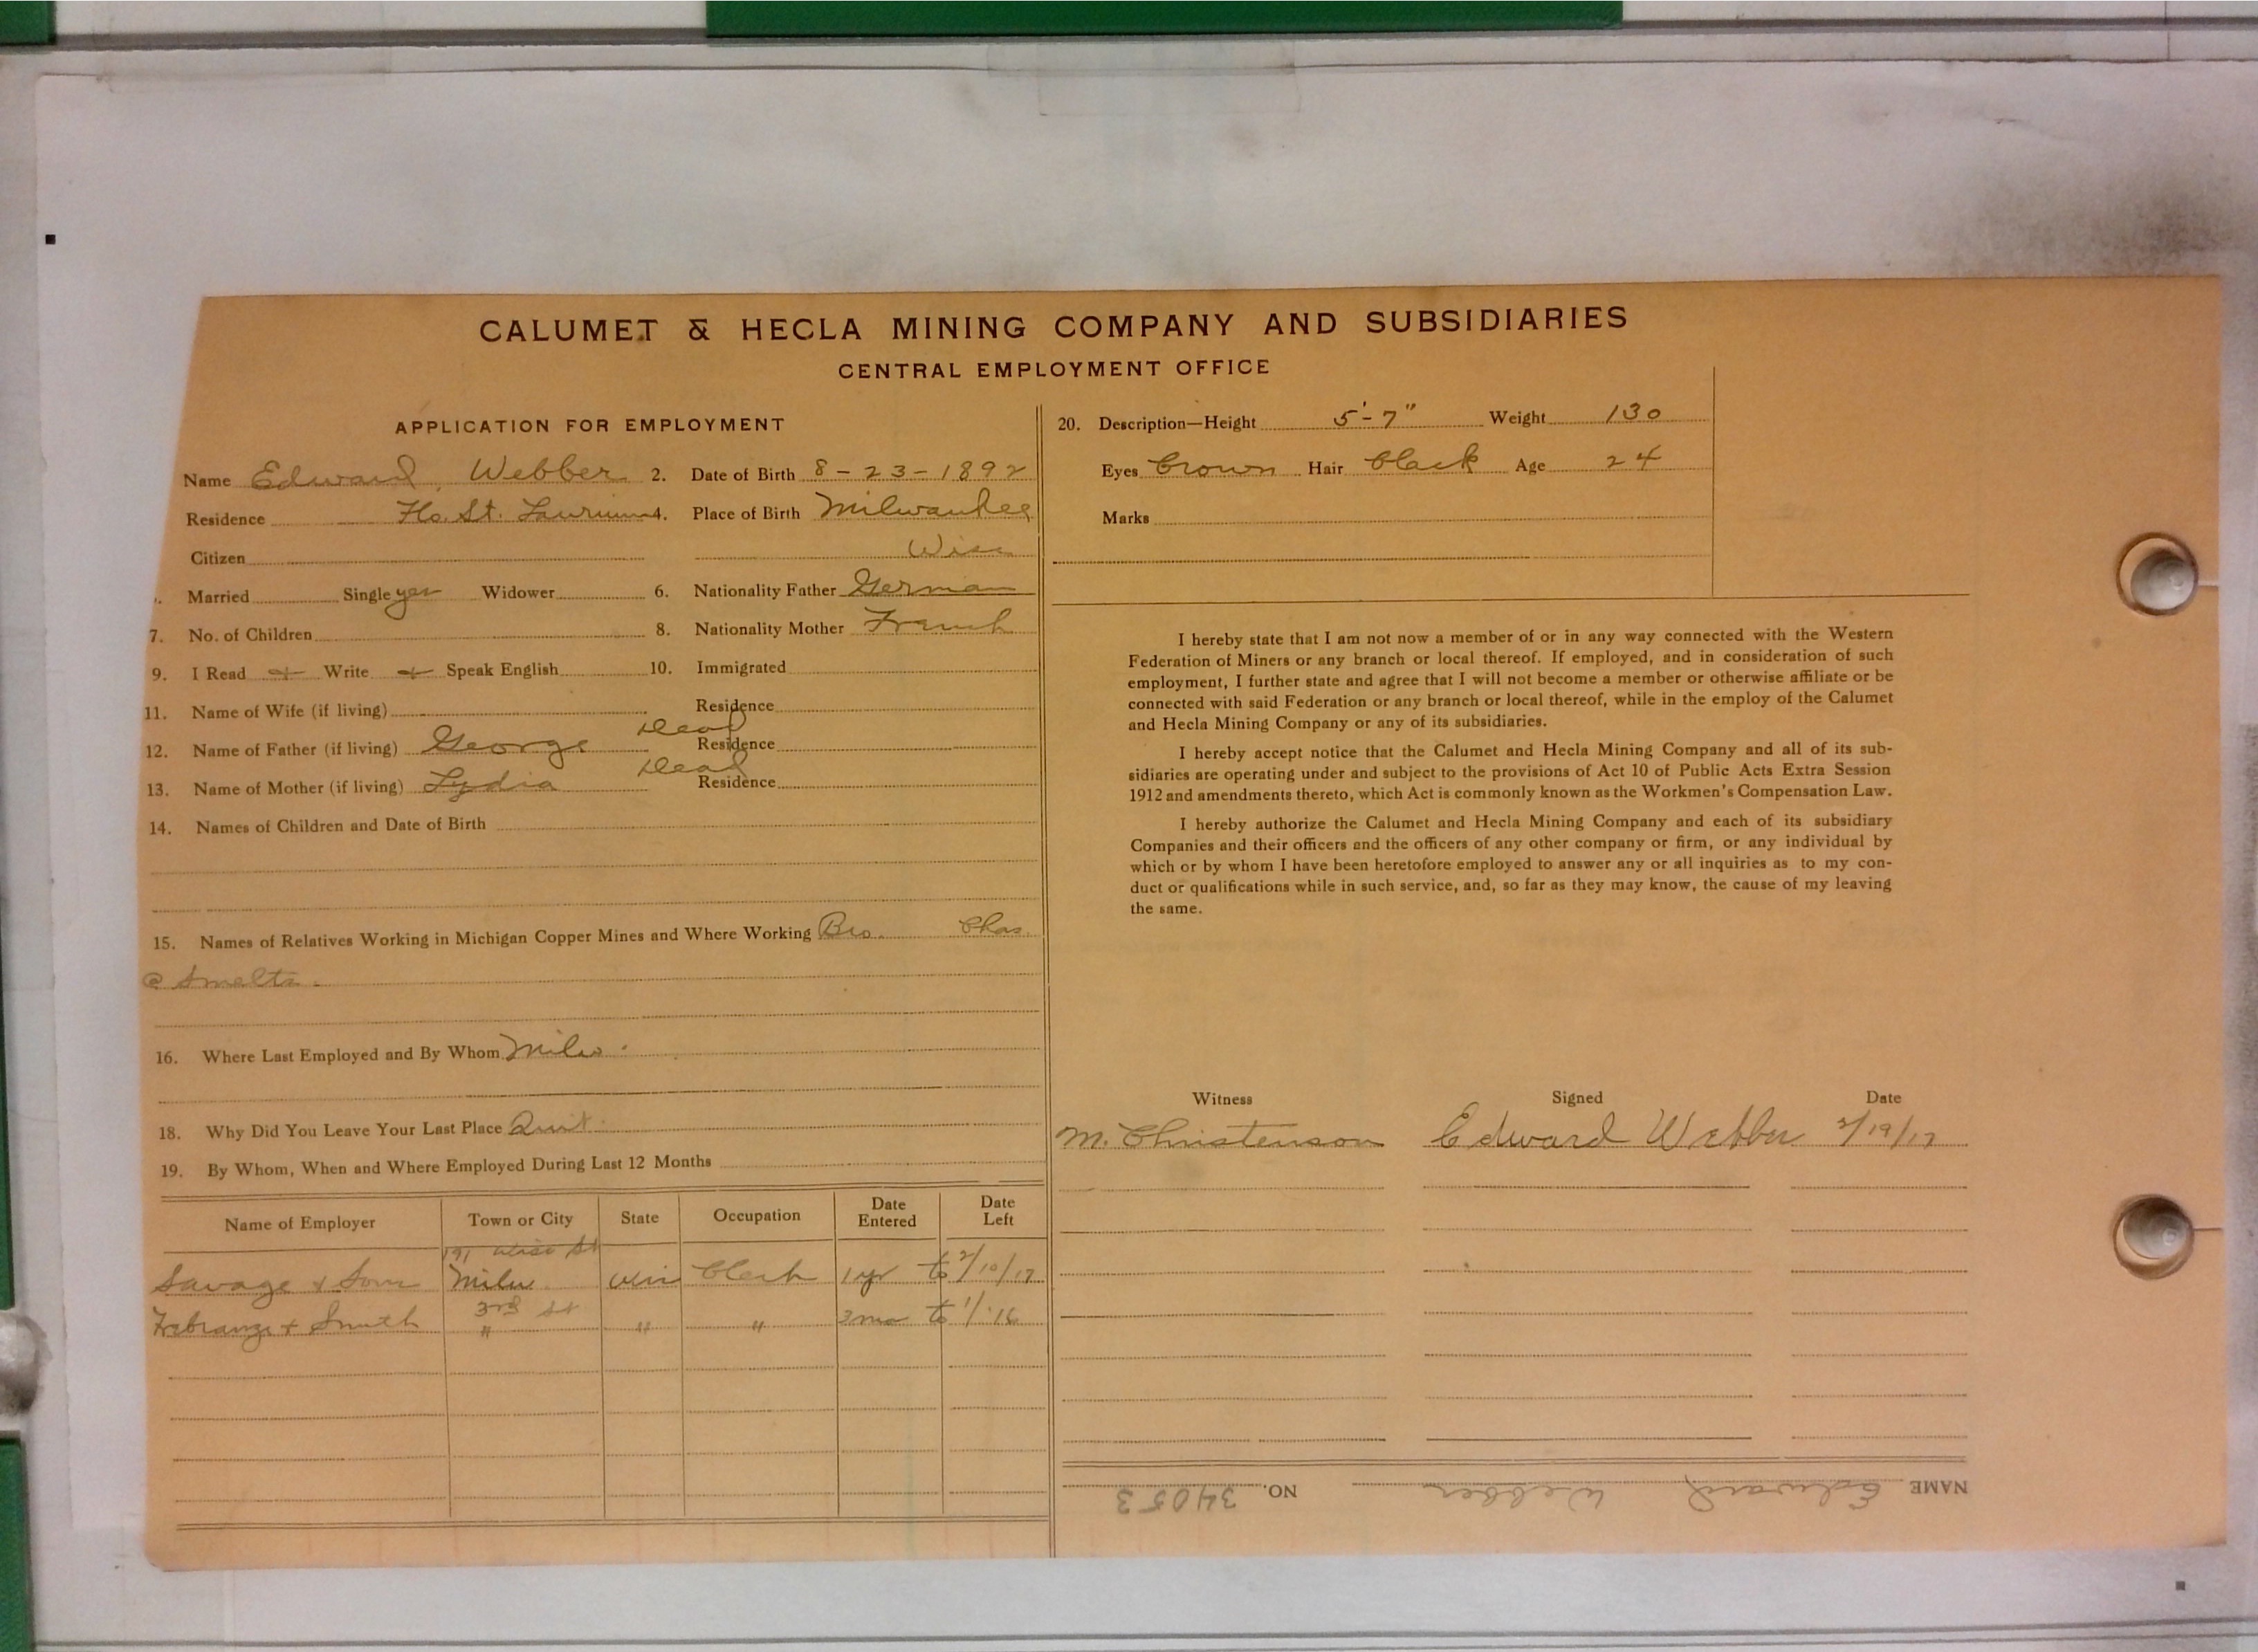 CALUMET & HECLA MINING COMPANY AND SUBSIDIARIES
CENTRAL EMPLOYMENT OFFICE
APPLICATION FOR EMPLOYMENT
Name Edward Webber 2. Date of Birth 8-23-1892
Residence St. Laurium 4. Place of Birth Milwaukee
Citizen Wisc
Married Single yes Widower 6. Nationality Father German
7. No. of Children 8. Nationality Mother French
9. I Read + Write + Speak English 10. Immigrated
11. Name of Wife (if living) Residence
12. Name of Father (if living) George Dead Residence
13. Name of Mother (if living) Lydia Dead Residence
14. Names of Children and Date of Birth
15. Names of Relatives Working in Michigan Copper Mines and Where Working Bro. Chas.
@ Smelts.
16. Where Last Employed and By Whom Milw.
18. Why Did You Leave Your Last Place Quit.
19. By Whom, When and Where Employed During Last 12 Months
Name of Employer Town or City State Occupation Date Entered Date Left
191 St
Savage & Sons Milw. Wis Clerk 1 yr to 2/10/17
3rd St
& Smith " " " 3 mo to 1/16
20. Description—Height 5'-7" Weight 130
Eyes brown Hair black Age 24
Marks
I hereby state that I am not now a member of or in any way connected with the Western
Federation of Miners or any branch or local thereof. If employed, and in consideration of such
employment, I further state and agree that I will not become a member or otherwise affiliate or be
connected with said Federation or any branch or local thereof, while in the employ of the Calumet
and Hecla Mining Company or any of its subsidiaries.
I hereby accept notice that the Calumet and Hecla Mining Company and all of its sub-
sidiaries are operating under and subject to the provisions of Act 10 of Public Acts Extra Session
1912 and amendments thereto, which Act is commonly known as the Workmen's Compensation Law.
I hereby authorize the Calumet and Hecla Mining Company and each of its subsidiary
Companies and their officers and the officers of any other company or firm, or any individual by
which or by whom I have been heretofore employed to answer any or all inquiries as to my con-
duct or qualifications while in such service, and, so far as they may know, the cause of my leaving
the same.
Witness Signed Date
M. Christenson Edward Webber 2/19/17
NAME Edward Webber NO. 34053